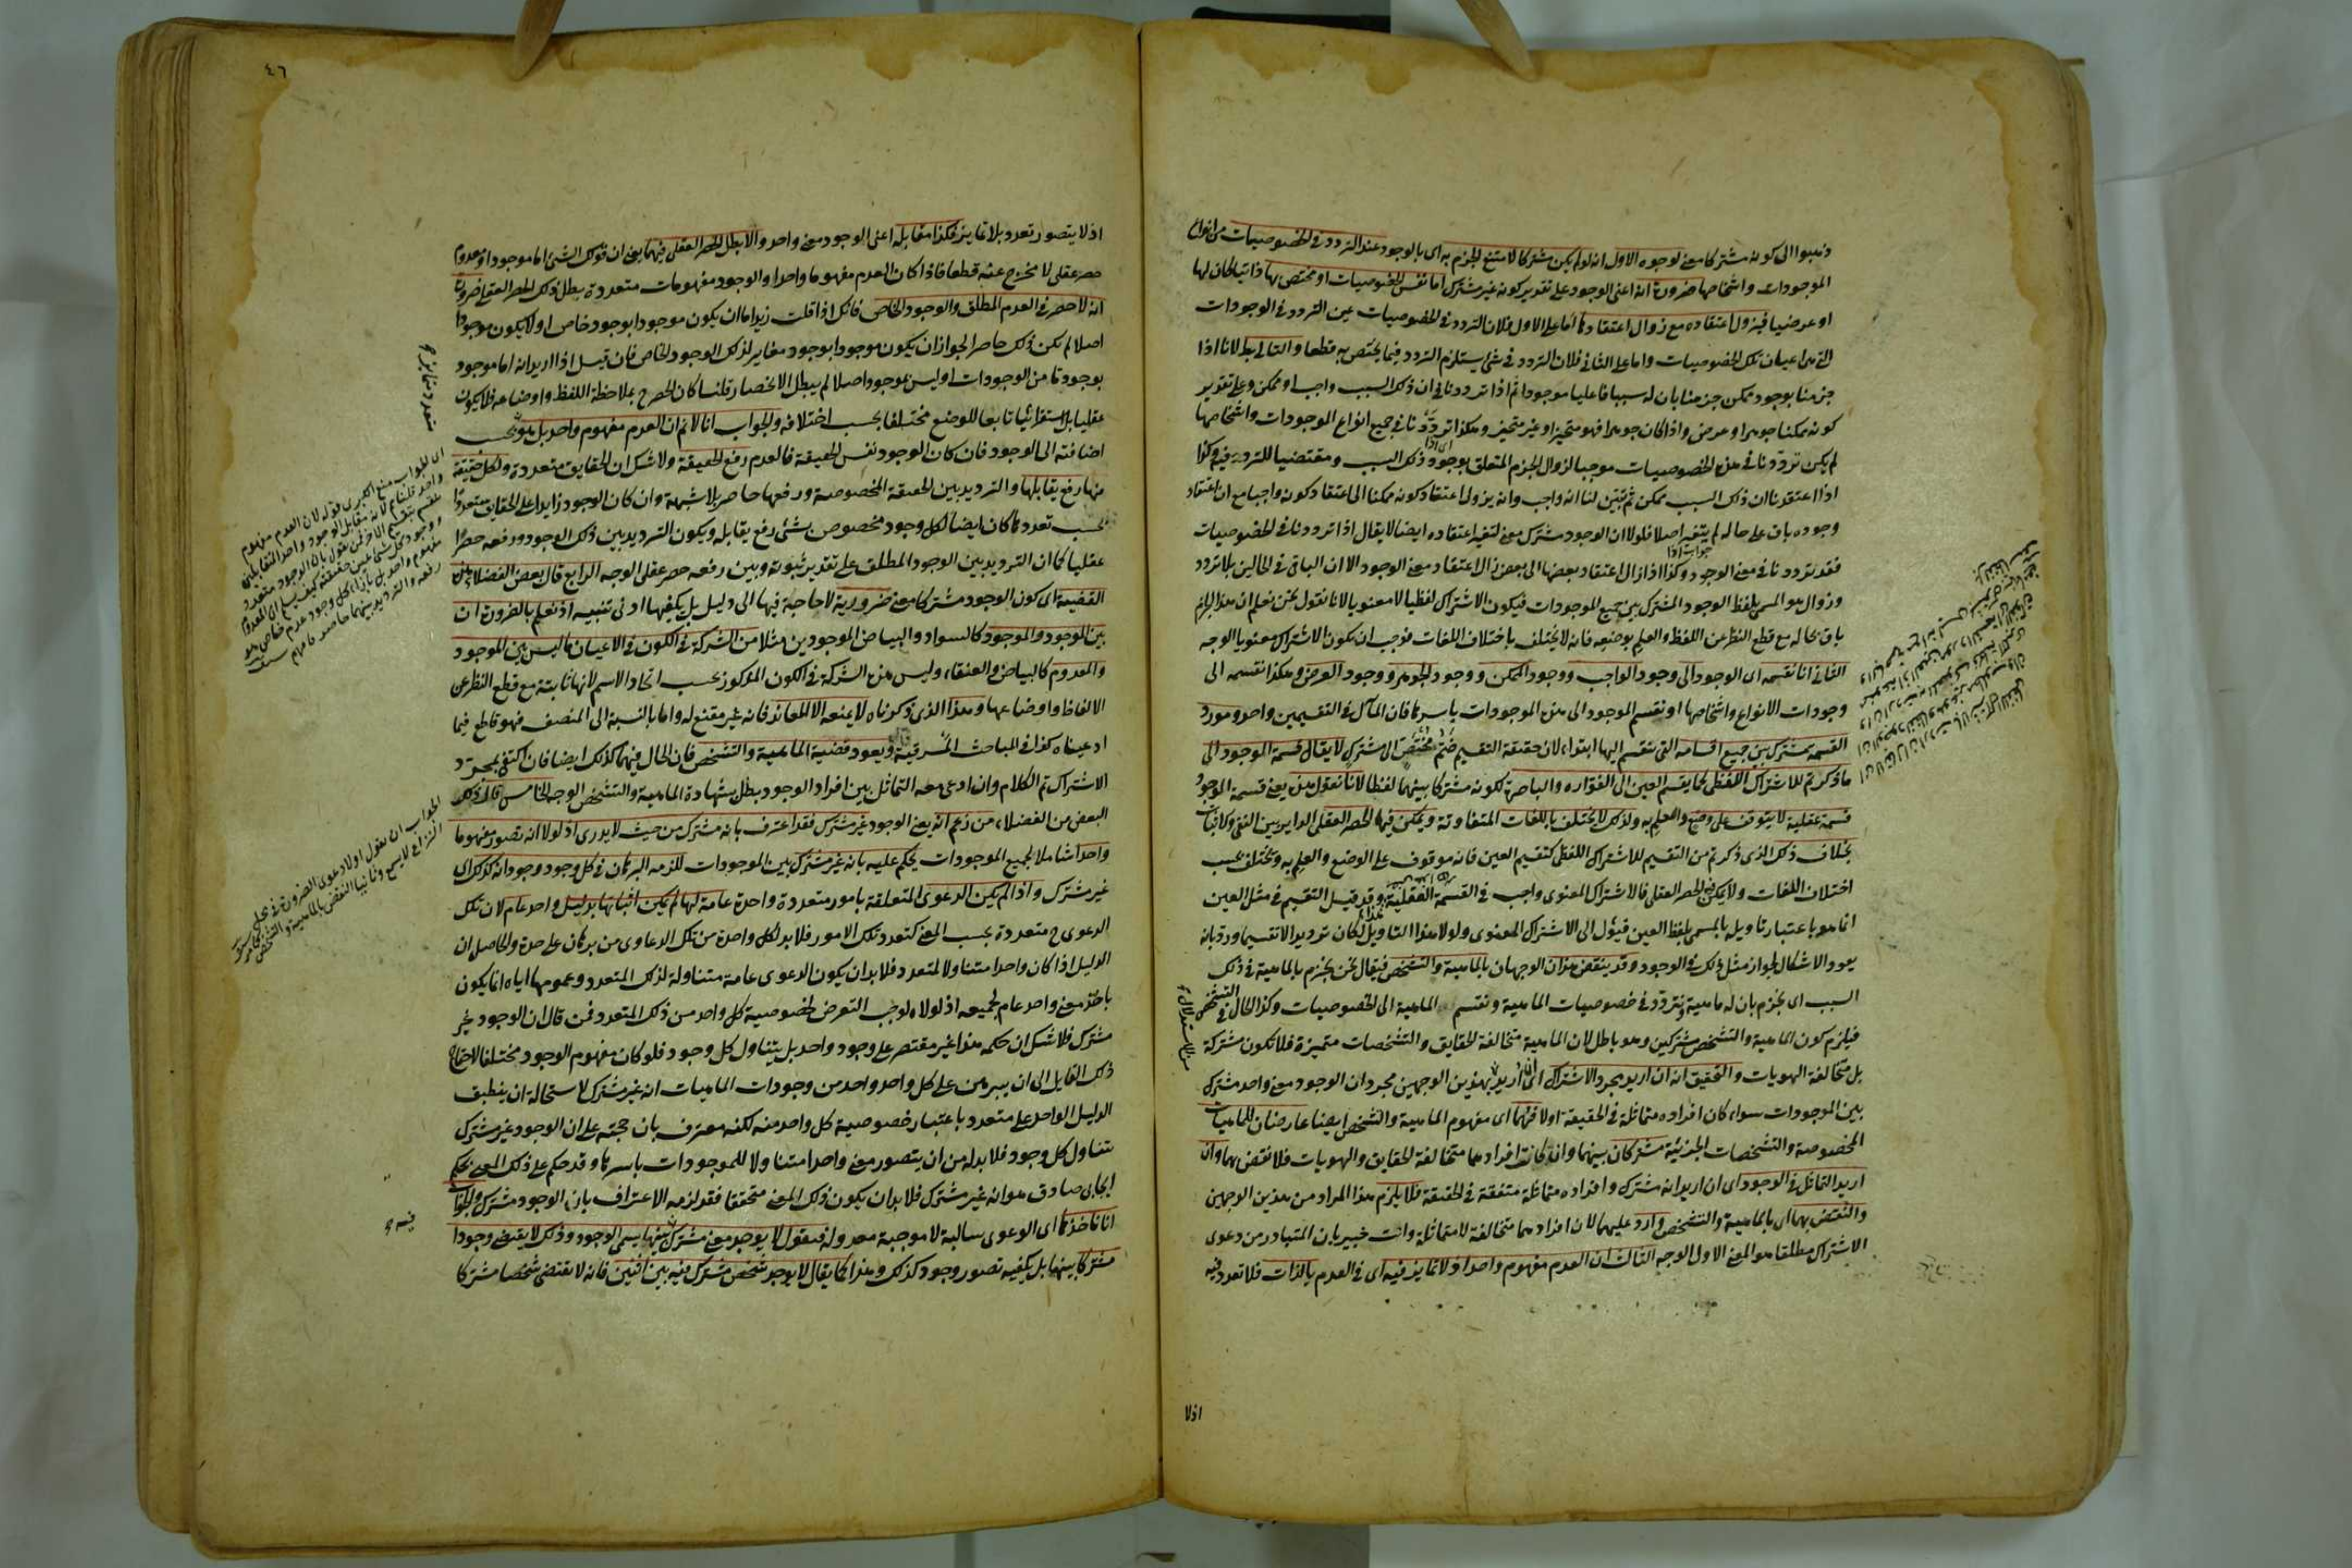 ذهبوا الى كونه مشتركا معنى لوجوه الاول انه لو لم يكن مشتركا لامتنع الجزم به اى بالوجود عند التردد فى الخصوصيات من انواع
الموجودات واشخاصها ضرورة انه اعنى الوجود على تقدير كونه غير مشترك اما نفس الخصوصيات او مختص بها ذاتيا كان لها
او عرضيا فيزول اعتقاده مع زوال اعتقادها اما على الاول فلان التردد فى الخصوصيات عين التردد فى الوجودات
التى هى اعيان تلك الخصوصيات واما على الثانى فلان التردد فى شئ يستلزم التردد فيما يختص به قطعا والتالى بط لانا اذا
جزمنا بوجود ممكن جزمنا بان له سببا فاعليا موجودا ثم اذا ترددنا فى ان ذلك السبب واجب او ممكن وعلى تقدير
كونه ممكنا جوهر او عرض واذا كان جوهرا فهو متحيز او غير متحيز وهكذا ترددنا فى جميع انواع الموجودات واشخاصها
لم يكن ترددنا فى هذه الخصوصيات موجبا لزوال الجزم المتعلق بوجود ذلك السبب ومقتضيا للتردد فيه وكذا
اذا اعتقدنا ان ذلك السبب ممكن ثم تبين لنا انه واجب وانه يزول اعتقاد كونه ممكنا الى اعتقاد كونه واجبا مع ان اعتقاد
وجوده باق على حاله لم يتغير اصلا فلولا ان الوجود مشترك معنى لتغير اعتقاده ايضا لا يقال اذا ترددنا فى الخصوصيات
فقد ترددنا فى معنى الوجود وكذا اذا زال اعتقاد بعضها الى بعض زال اعتقاد معنى الوجود الا ان الباقى فى الحالين بلا تردد
وزوال هو المسمى بلفظ الوجود المشترك بين جميع الموجودات فيكون الاشتراك لفظيا لا معنويا لانا نقول نحن نعلم ان هذا الجزم
باق بحاله مع قطع النظر عن اللفظ والعلم بوضعه فانه لا يختلف باختلاف اللغات فوجب ان يكون الاشتراك معنويا الوجه
الثانى انا نقسمه اى الوجود الى وجود الواجب ووجود الممكن ووجود الجوهر ووجود العرض وهكذا نقسمه الى
وجودات الانواع واشخاصها او نقسم الموجود الى هذه الموجودات باسرها فان المآل فى التقسيمين واحد ومورد
القسمة مشترك بين جميع اقسامه التى ينقسم اليها ابتداء لان حقيقة التقسيم ضم مختص الى مشترك لا يقال قسمة الموجود الى
ما ذكرتم للاشتراك اللفظى كما يقسم العين الى الفوارة والباصرة لكونه مشتركا بينهما لفظا لانا نقول هذه يعنى قسمة الوجود
قسمة عقلية لا يتوقف على وضع والعلم به ولذلك لا يختلف باللغات المتفاوتة ويمكن فيها الحصر العقلى الداير بين النفى والاثبات
بخلاف ذلك الذى ذكرتم من التقسيم للاشتراك اللفظى كتقسيم العين فانه موقوف على الوضع والعلم به ويختلف بحسب
اختلاف اللغات ولا يمكن فيه الحصر العقلى فالاشتراك المعنوى واجب فى القسمة العقلية وقد قيل التقسيم فى مثل العين
انما هو باعتبار تاويله بالمسمى بلفظ العين فيئول الى الاشتراك المعنوى ولولا هذا التاويل لكان ترديدا لا تقسيما ورد بانه
يعود الاشكال لجواز مثل ذلك فى الوجود وقد ينقض هذان الوجهان بالماهية والتشخص فيقال نحن نجزم بالماهية فى ذلك
السبب اى نجزم بان له ماهية ونتردد فى خصوصيات الماهية ونقسم الماهية الى الخصوصيات وكذا الحال فى التشخص
فيلزم كون الماهية والتشخص مشتركين وهو باطل لان الماهية متخالفة الحقايق والتشخصات متميزة فلا تكون مشتركة
بل متخالفة الهويات والتحقيق انه ان اريد مجرد الاشتراك اى ان اريد بهذين الوجهين مجرد ان الوجود معنى واحد مشترك
بين الموجودات سواء كان افراده متماثلة فى الحقيقة اولا فهما اى مفهوم الماهية والتشخص ايضا عارضان للماهيات
المخصوصة والتشخصات الجزئية مشتركان بينهما وان كانت افرادهما متخالفة الحقايق والهويات فلا نقض بهما وان
اريد التماثل فى الوجود اى ان اريد انه مشترك وافراده متماثلة متفقة فى الحقيقة فلا يلزم هذا المراد من هذين الوجهين
والنقض بهما اى بالماهية والتشخص وارد عليهما لان افرادهما متخالفة لا متماثلة وانت خبير بان المتبادر من دعوى
الاشتراك مطلقا هو المعنى الاول الوجه الثالث ان العدم مفهوم واحد اذ لا تمايز فيه اى فى العدم بالذات فلا تعدد فيه
اذلا
٤٦
اذ لا يتصور تعدد بلا تمايز فكذا مقابله اعنى الوجود معنى واحد والا بطل الحصر العقلى فيهما يعنى ان قولك الشئ اما موجود او معدوم
حصر عقلى لا مخرج عنه قطعا فاذا كان العدم مفهوما واحدا والوجود مفهومات متعددة بطل ذلك الحصر العقلى ضرورة
انه لا حصر فى العدم المطلق والوجود الخاص فانك اذا قلت زيد اما ان يكون موجودا بوجود خاص او لا يكون موجودا
اصلا لم يكن ذلك حاصرا لجواز ان يكون موجودا بوجود مغاير لذلك الوجود الخاص فان قيل اذا اريد انه اما موجود
بوجود ما من الوجودات او ليس بموجود اصلا لم يبطل الانحصار قلنا كان الحصر ح بملاحظة اللفظ واوضاعه فلا يكون
عقليا بل استقرائيا تابعا للوضع مختلفا بحسب اختلافه والجواب انا لا نم ان العدم مفهوم واحد بل هو بحسب
اضافته الى الوجود فان كان الوجود نفس الحقيقة فالعدم رفع الحقيقة ولا شك ان الحقايق متعددة ولكل حقيقة
منها رفع يقابلها والترديد بين الحقيقة المخصوصة ورفعها حاصر بلا شبهة وان كان الوجود زايدا على الحقايق متعددا
بحسب تعددها كان ايضا لكل وجود مخصوص بشئ رفع يقابله ويكون الترديد بين ذلك الوجود ورفعه حصرا
عقليا كما ان الترديد بين الوجود المطلق على تقدير ثبوته وبين رفعه حصر عقلى الوجه الرابع قال بعض الفضلاء هذه
القضية اى كون الوجود مشتركا معنى ضرورية لا حاجة فيها الى دليل بل يكفيها ادنى تنبيه اذ نعلم بالضرورة ان
بين الموجود والموجود كالسواد والبياض الموجودين مثلا من الشركة فى الكون فى الاعيان ما ليس بين الموجود
والمعدوم كالبياض والعنقاء وليس هذه الشركة فى الكون المذكور بحسب اتحاد الاسم لانها ثابتة مع قطع النظر عن
الالفاظ واوضاعها وهذا الذى ذكرناه لا يمنعه الا المعاند فانه غير مقنع له واما بالنسبة الى المنصف فهو قاطع فيما
ادعيناه كذا فى المباحث المشرقية ويعود قضية الماهية والتشخص فان الحال فيهما كذلك ايضا فان اكتفى بمجرد
الاشتراك تم الكلام وان ادعى معه التماثل بين افراد الوجود بطل بشهادة الماهية والتشخص الوجه الخامس قال ذلك
البعض من الفضلاء من زعم انه يعنى الوجود غير مشترك فقد اعترف بانه مشترك من حيث لا يدرى اذ لولا انه تصور مفهوما
واحدا شاملا لجميع الموجودات يحكم عليه بانه غير مشترك بين الموجودات للزمه البرهان فى كل وجود وجود انه كذلك اى
غير مشترك واذا لم يكن الدعوى المتعلقة بامور متعددة واحدة عامة لها لم يمكن اثباتها بدليل واحد عام لان تلك
الدعوى ح متعددة بحسب المعنى كتعدد تلك الامور فلا بد لكل واحدة من تلك الدعاوى من برهان على حدة والحاصل ان
الدليل اذا كان واحدا متناولا لمتعدد فلا بد ان يكون الدعوى عامة متناولة لذلك المتعدد وعمومها اياه انما يكون
باخذ معنى واحد عام لجميعه اذ لولاه لوجب التعرض لخصوصية كل واحد من ذلك المتعدد فمن قال ان الوجود غير
مشترك فلا شك ان حكمه هذا غير مقتصر على وجود واحد بل يتناول كل وجود فلو كان مفهوم الوجود مختلفا لاحتاج
ذلك القايل الى ان يبرهن على كل واحد واحد من وجودات الماهيات انه غير مشترك لاستحالة ان ينطبق
الدليل الواحد على متعدد باعتبار خصوصية كل واحد منه لكنه معترف بان حجته على ان الوجود غير مشترك
يتناول كل وجود فلا بد له من ان يتصور معنى واحدا متناولا للموجودات باسرها وقد حكم على ذلك المعنى بحكم
ايجابى صادق هو انه غير مشترك فلا بد ان يكون ذلك المعنى متحققا فقد لزمه الاعتراف بان الوجود مشترك والجواب
انا ناخذها اى الدعوى سالبة لا موجبة معدولة فنقول لا يوجد معنى مشترك بينهما يسمى الوجود وذلك لا يقتضى وجودا
مشتركا بينهما بل يكفيه تصور وجود كذلك وهذا كما يقال لا يوجد شخص مشترك فيه بين اثنين فانه لا يقتضى شخصا مشتركا